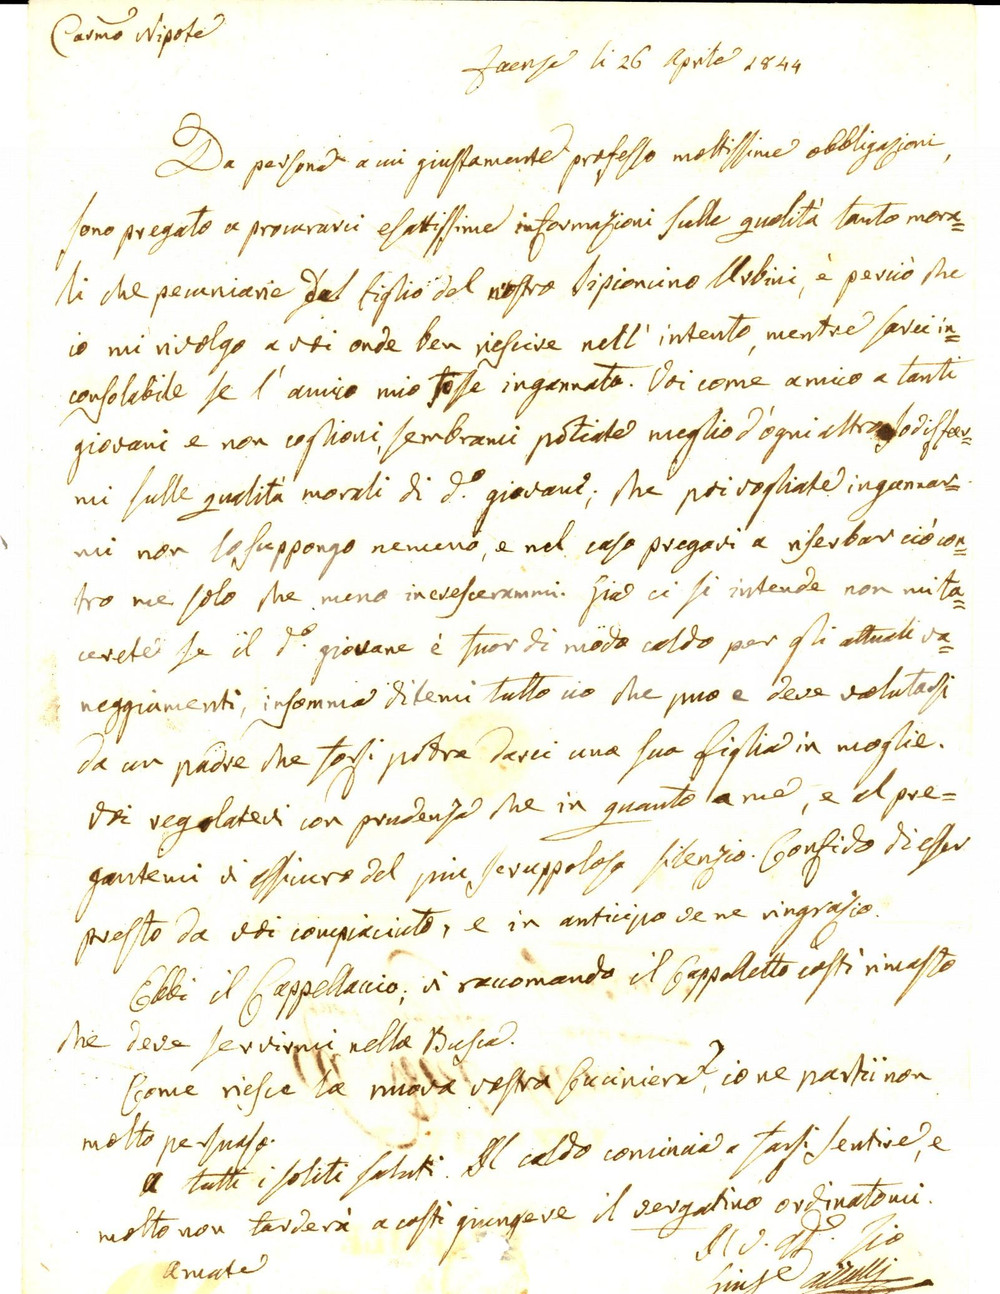 Carmo Nipote
Faenza li 26 Aprile 1844
Da persona a cui giustamente professo moltissime obbligazioni,
sono pregato a procurarci esattissime informazioni sulle qualità tanto mora=
li che pecuniarie del figlio del nostro Sipioncino Urbini, è perciò che
io mi rivolgo a voi onde ben riescire nell' intento, mentre sarei in=
consolabile se l' amico mio fosse ingannato. Voi come amico a tanti
giovani e non coglioni, sembrami potiate meglio d'ogni altro sodisfar=
mi sulle qualità morali di d.o giovane; che poi vogliate ingannar=
mi non lo suppongo nemeno, e nel caso pregovi a riserbar ciò con=
tro me solo che meno incresceram̄mi. Già ci si intende non mi ta=
cerete se il d.o giovane è fuor di modo caldo per gli attuali va=
neggiamenti, insomma ditemi tutto ciò che può e deve valutarsi
da un padre che forsi potra darci una sua figlia in moglie.
Voi regolatevi con prudenza che in quanto a me, e al pre=
gantemi vi assicuro del più scruppoloso silenzio. Confido di esser
presto da voi compiaciuto, e in anticipo ve ne ringrazio.
Ebbi il Cappellaccio; vi raccomando il Cappelletto costì rimasto
che deve servirmi nella Busca.
Come riesce la nuova vostra Cuciniera? io ne partii non
molto persuaso.
A tutti i soliti saluti. Il caldo comincia a farsi sentire, e
molto non tarderà a costì giungere il vergatino ordinatomi.
Amate
Il v. aff.o Zio